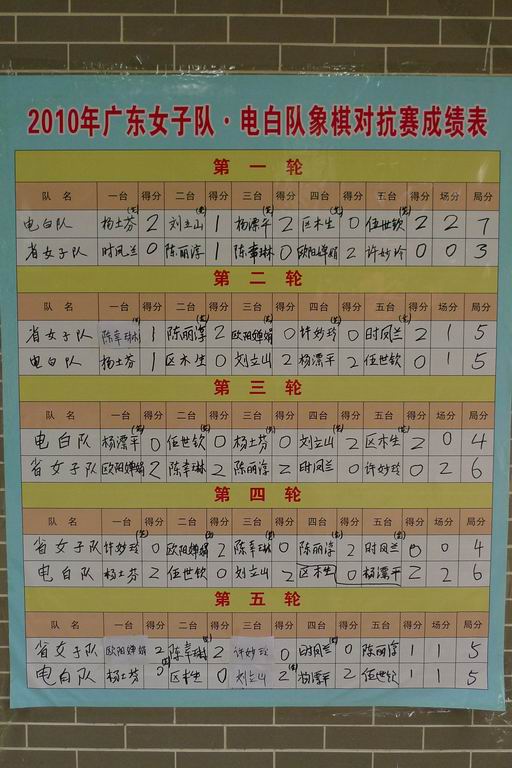 2010年广东女子队·电白队象棋对抗赛成绩表
第一轮
队名 一台 得分 二台 得分 三台 得分 四台 得分 五台 得分 场分 局分
电白队 杨土芬 2 刘立山 1 杨漂平 2 区木生 0 伍世钦 2 2 7
省女子队 时凤兰 0 陈丽淳 1 陈幸琳 0 欧阳婵娟 2 许妙玲 0 0 3
第二轮
队名 一台 得分 二台 得分 三台 得分 四台 得分 五台 得分 场分 局分
省女子队 陈幸琳 1 陈丽淳 2 欧阳婵娟 0 许妙玲 0 时凤兰 2 1 5
电白队 杨土芬 1 区木生 0 刘立山 2 杨漂平 2 伍世钦 0 1 5
第三轮
队名 一台 得分 二台 得分 三台 得分 四台 得分 五台 得分 场分 局分
电白队 杨漂平 0 伍世钦 0 杨土芬 0 刘立山 2 区木生 2 0 4
省女子队 欧阳婵娟 2 陈幸琳 2 陈丽淳 2 时凤兰 0 许妙玲 0 2 6
第四轮
队名 一台 得分 二台 得分 三台 得分 四台 得分 五台 得分 场分 局分
省女子队 许妙玲 0 欧阳婵娟 2 陈幸琳 0 陈丽淳 2 时凤兰 0 0 4
电白队 杨土芬 2 伍世钦 0 刘立山 2 区木生 0 杨漂平 2 2 6
第五轮
队名 一台 得分 二台 得分 三台 得分 四台 得分 五台 得分 场分 局分
省女子队 欧阳婵娟 2 陈幸琳 2 许妙玲 0 时凤兰 0 陈丽淳 1 1 5
电白队 杨土芬 0 区木生 0 刘立山 2 杨漂平 2 伍世钦 1 1 5